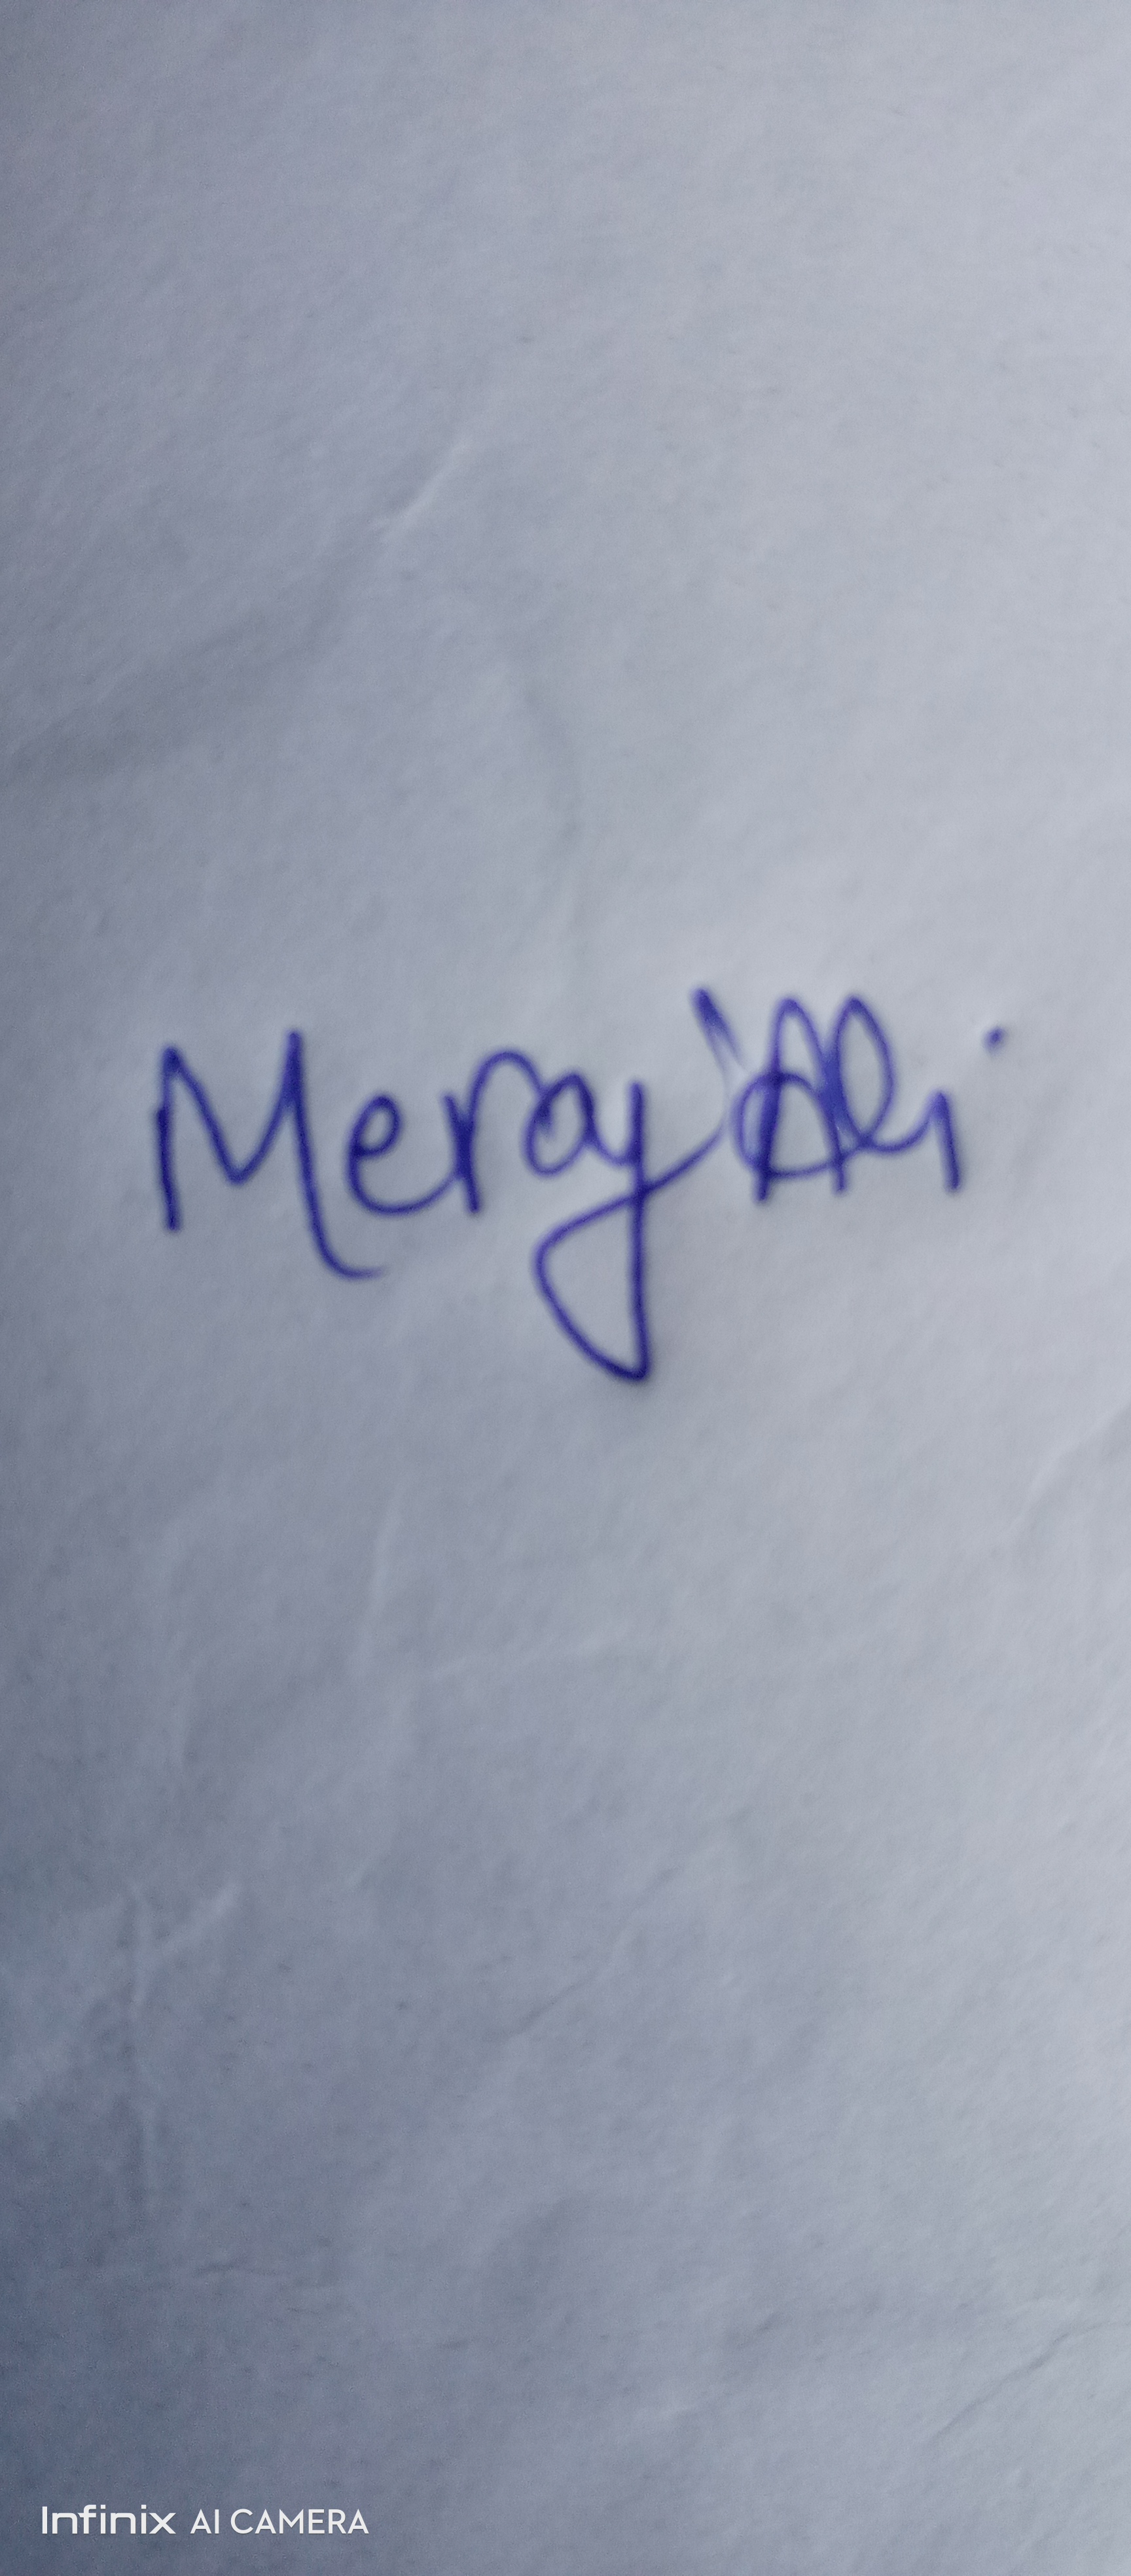 Meraj Ali
Infinix AI CAMERA